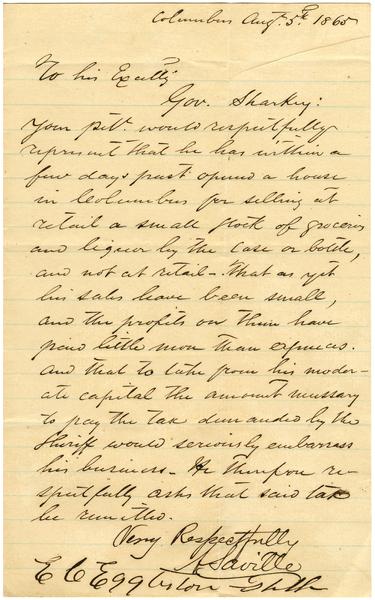 Columbus Augt. 5th 1865
To his Excelly
Gov. Sharkey:
Your pet. would respectfully
represent that he has within a
few days past opened a house
in Columbus for selling at
retail a small stock of groceries
and liquor by the case or bottle,
and not at retail - That as yet
his sales have been small,
and the profits on them have
paid little more than expenses.
And that to take from his moder-
ate capital the amount necessary
to pay the tax demanded by the
Sheriff would seriously embarrass
his business - He therefore re-
spectfully asks that said tax
be remitted.
Very Respectfully
Saville
E C Eggleston